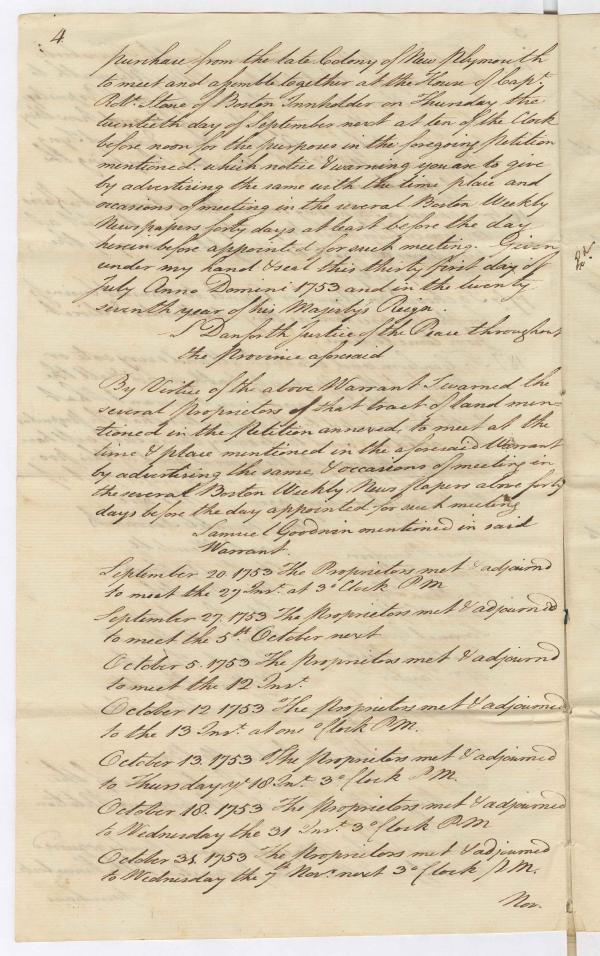 4
purchase from the late Colony of New Plymouth
to meet and assemble together at the House of Capt.
Robt. Stone of Boston Innholder on Thursday the
twentieth day of September next at ten of the Clock
before noon for the purposes in the foregoing Petition
mentioned. which notice & warning you are to give
by advertising the same with the time place and
occasions of meeting in the several Boston Weekly
Newspapers forty days at least before the day
herein before appointed for such meeting. Given
under my hand & seal this thirty first day of
July Anno Domini 1753 and in the twenty
seventh year of his Majestys Reign.
S Danforth Justice of the Peace throughout
the Province aforesaid
By Virtue of the above Warrant I warned the
several Proprietors of that tract of land men=
tioned in the Petition annexed, to meet at the
time & place mentioned in the aforesaid Warrant
by advertising the same, & occasions of meeting in
the several Boston Weekly News Papers above forty
days before the day appointed for such meeting
Samuel Goodwin mentioned in said
Warrant.
September 20. 1753 The Proprietors met & adjournd
to meet the 27 Inst. at 3 oClock PM
September 27. 1753 The Proprietors met & adjourned
to meet the 5th. October next
October 5. 1753 The Proprietors met & adjournd
to meet the 12 Inst.
October 12 1753 The Proprietors met & adjourned
to the 13 Inst. at one oClock P.M.
October 13. 1753 The Proprietors met & adjourned
to Thursday ye. 18 Inst. 3 oClock P.M.
October 18. 1753 The Proprietors met & adjourned
to Wednesday the 31 Inst. 3 oClock P.M
October 31. 1753 The Proprietors met & adjourned
to Wednesday the 7th Novr. next 3 oClock P.M.
Nov.